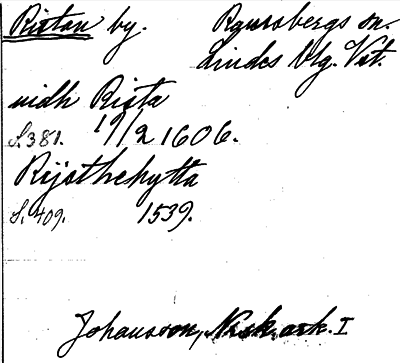 Ristan by. Ramsbergs sn.
Lindes blg. Vst.
widh Rista
S.381. 19/2 1606.
Rijsthehytta
S. 409. 1539.
Johansson, Nsk. ark. I